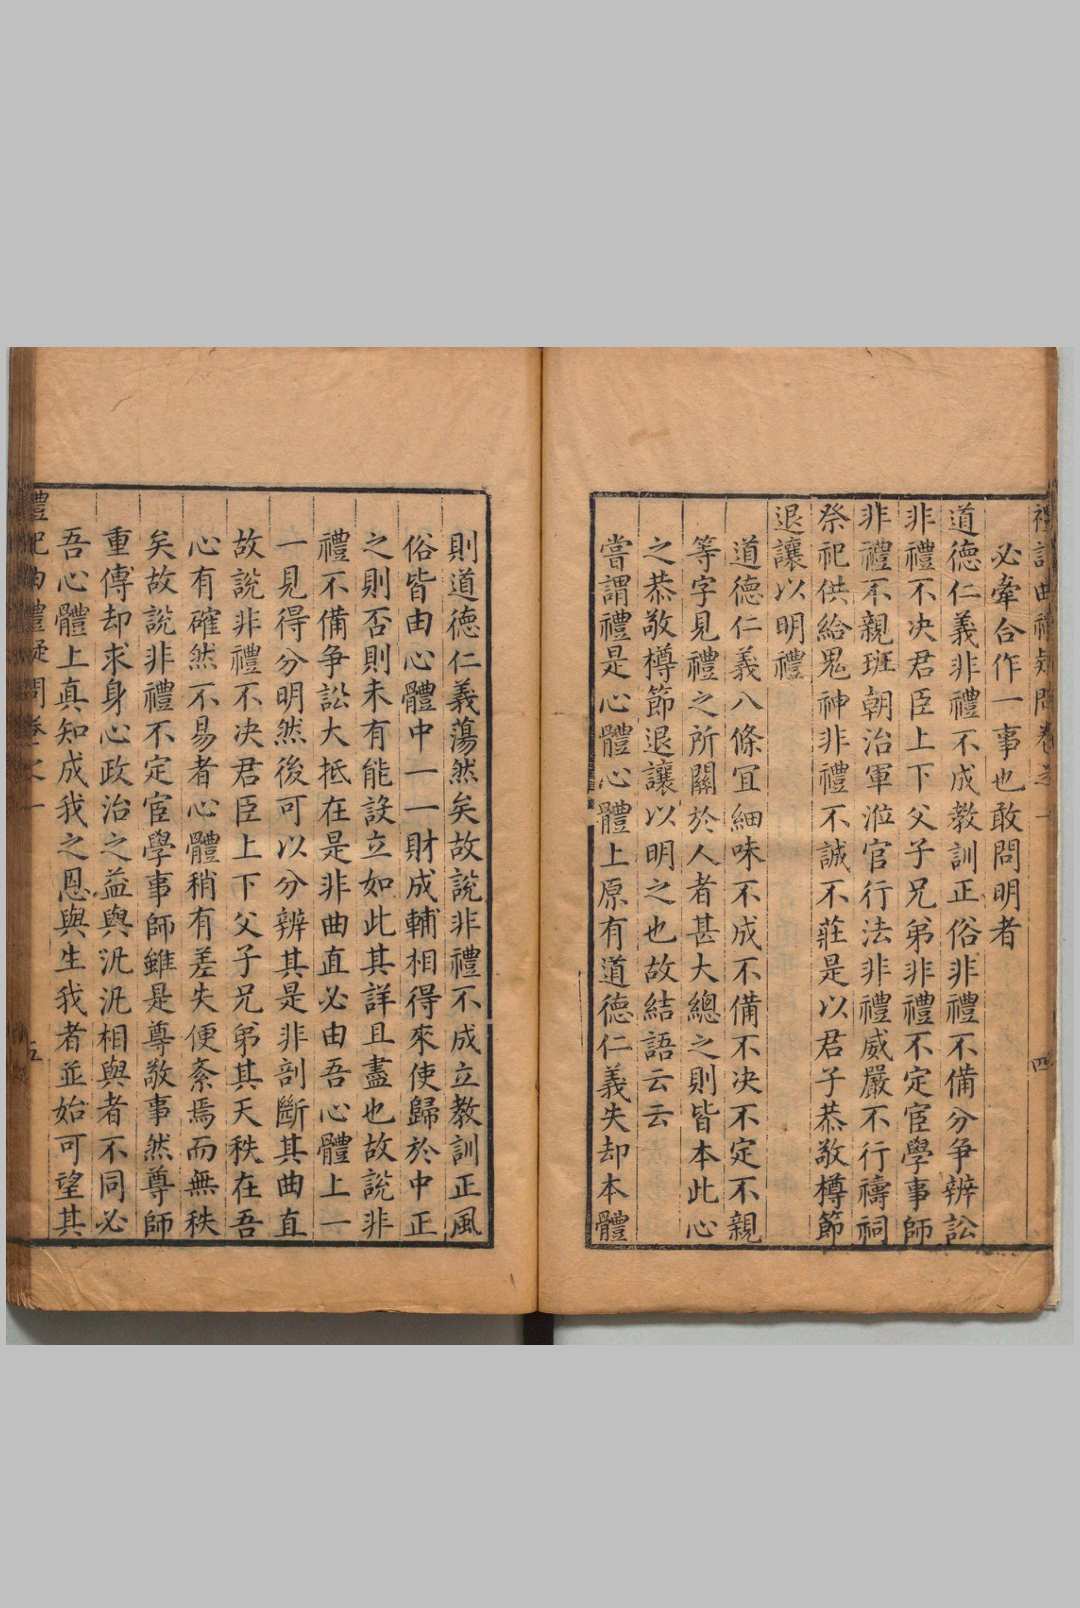 禮記曲禮疑問卷之一 四
必牽合作一事也敢問明者
道德仁義非禮不成教訓正俗非禮不備分争辨訟
非禮不决君臣上下父子兄弟非禮不定宦學事師
非禮不親班朝治軍涖官行法非禮威嚴不行禱祠
祭祀供給鬼神非禮不誠不莊是以君子恭敬樽節
退讓以明禮
道德仁義八條冝細味不成不備不决不定不親
等字見禮之所關於人者甚大總之則皆本此心
之恭敬樽節退讓以明之也故結語云云
嘗謂禮是心體心體上原有道德仁義失却本體
則道德仁義蕩然矣故說非禮不成立教訓正風
俗皆由心體中一一財成輔相得來使歸於中正
之則否則未有能設立如此其詳且盡也故說非
禮不備争訟大抵在是非曲直必由吾心體上一
一見得分明然後可以分辨其是非剖斷其曲直
故說非禮不决君臣上下父子兄弟其天秩在吾
心有確然不易者心體稍有差失便紊焉而無秩
矣故說非禮不定宦學事師雖是尊敬事然尊師
重傳却求身心政治之益與汎汎相與者不同必
吾心體上真知成我之恩與生我者並始可望其
禮記曲禮疑問卷之一 五